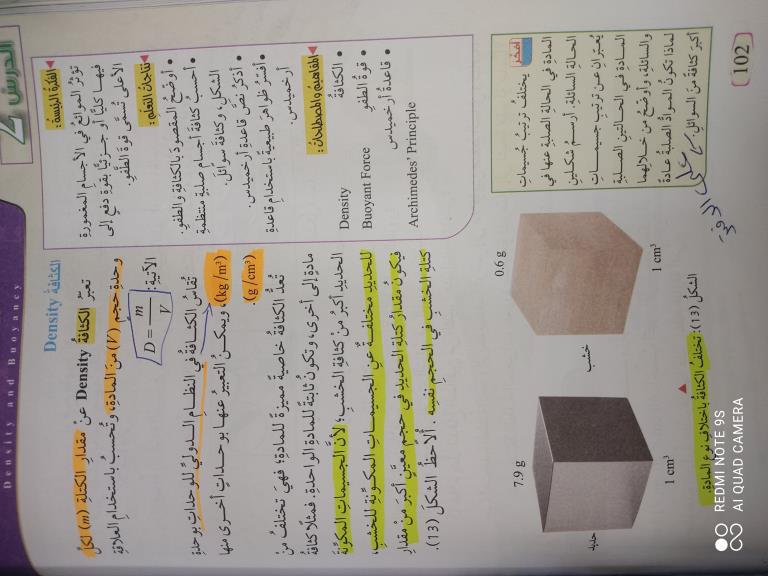 Density and Buoyancy
الدرس 2
الكثافة Density
تعبّر الكثافة Density عن مقدار الكتلة (m) لكلّ
وحدة حجم (V) من المادة، وتُحسب باستخدام العلاقة
الآتية:
D = m / V
تُقاس الكثافة في النظام الدولي للوحدات بوحدة
(kg/m³)، ويمكن التعبير عنها بوحدات أخرى منها
(g/cm³).
تُعدّ الكثافة خاصية مميزة للمادة؛ فهي تختلف من
مادة إلى أخرى، وتكون ثابتة للمادة الواحدة. فمثلًا كثافة
الحديد أكبر من كثافة الخشب؛ لأنّ الجسيمات المكوّنة
للحديد مختلفة عن الجسيمات المكوّنة للخشب،
فيكون مقدار كتلة الحديد في حجم معيّن أكبر من مقدار
كتلة الخشب في الحجم نفسه. ألاحظ الشكل (13).
الفكرة الرئيسة:
تؤثر الموائع في الأجسام المغمورة
فيها كليًّا أو جزئيًّا بقوة دفع إلى
الأعلى تُسمّى قوة الطفو.
نتاجات التعلم:
• أوضّح المقصود بالكثافة والطفو.
• أحسب كثافة أجسام صلبة منتظمة
الشكل، وكثافة سوائل.
• أذكر نصّ قاعدة أرخميدس.
• أفسّر ظواهر طبيعية باستخدام قاعدة
أرخميدس.
المفاهيم والمصطلحات:
• الكثافة Density
• قوة الطفو Buoyant Force
• قاعدة أرخميدس Archimedes' Principle
7.9 g
1 cm³
حديد
0.6 g
1 cm³
خشب
الشكل (13): تختلف الكثافة باختلاف نوع المادة.
أفكر يختلف ترتيب جسيمات
المادة في الحالة الصلبة عنها في
الحالة السائلة. أرسم شكلين
يُعبّران عن ترتيب جسيمات
المادة في الحالتين الصلبة
والسائلة، وأوضّح من خلالهما
لماذا تكون المواد الصلبة عادة
أكبر كثافة من السوائل.
102
REDMI NOTE 9S
AI QUAD CAMERA